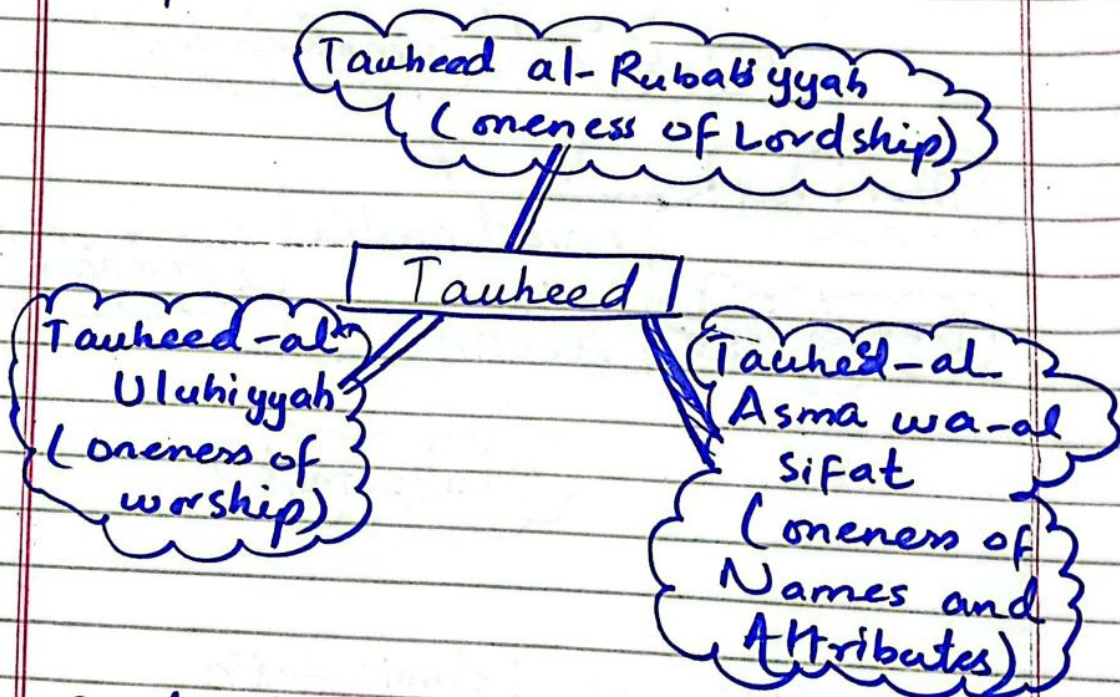 Tauheed al-Rububiyyah
(oneness of Lordship)
Tauheed
Tauheed-al
Uluhiyyah
(oneness of
worship)
Tauheed-al
Asma wa-al
Sifat
(oneness of
Names and
Attributes)